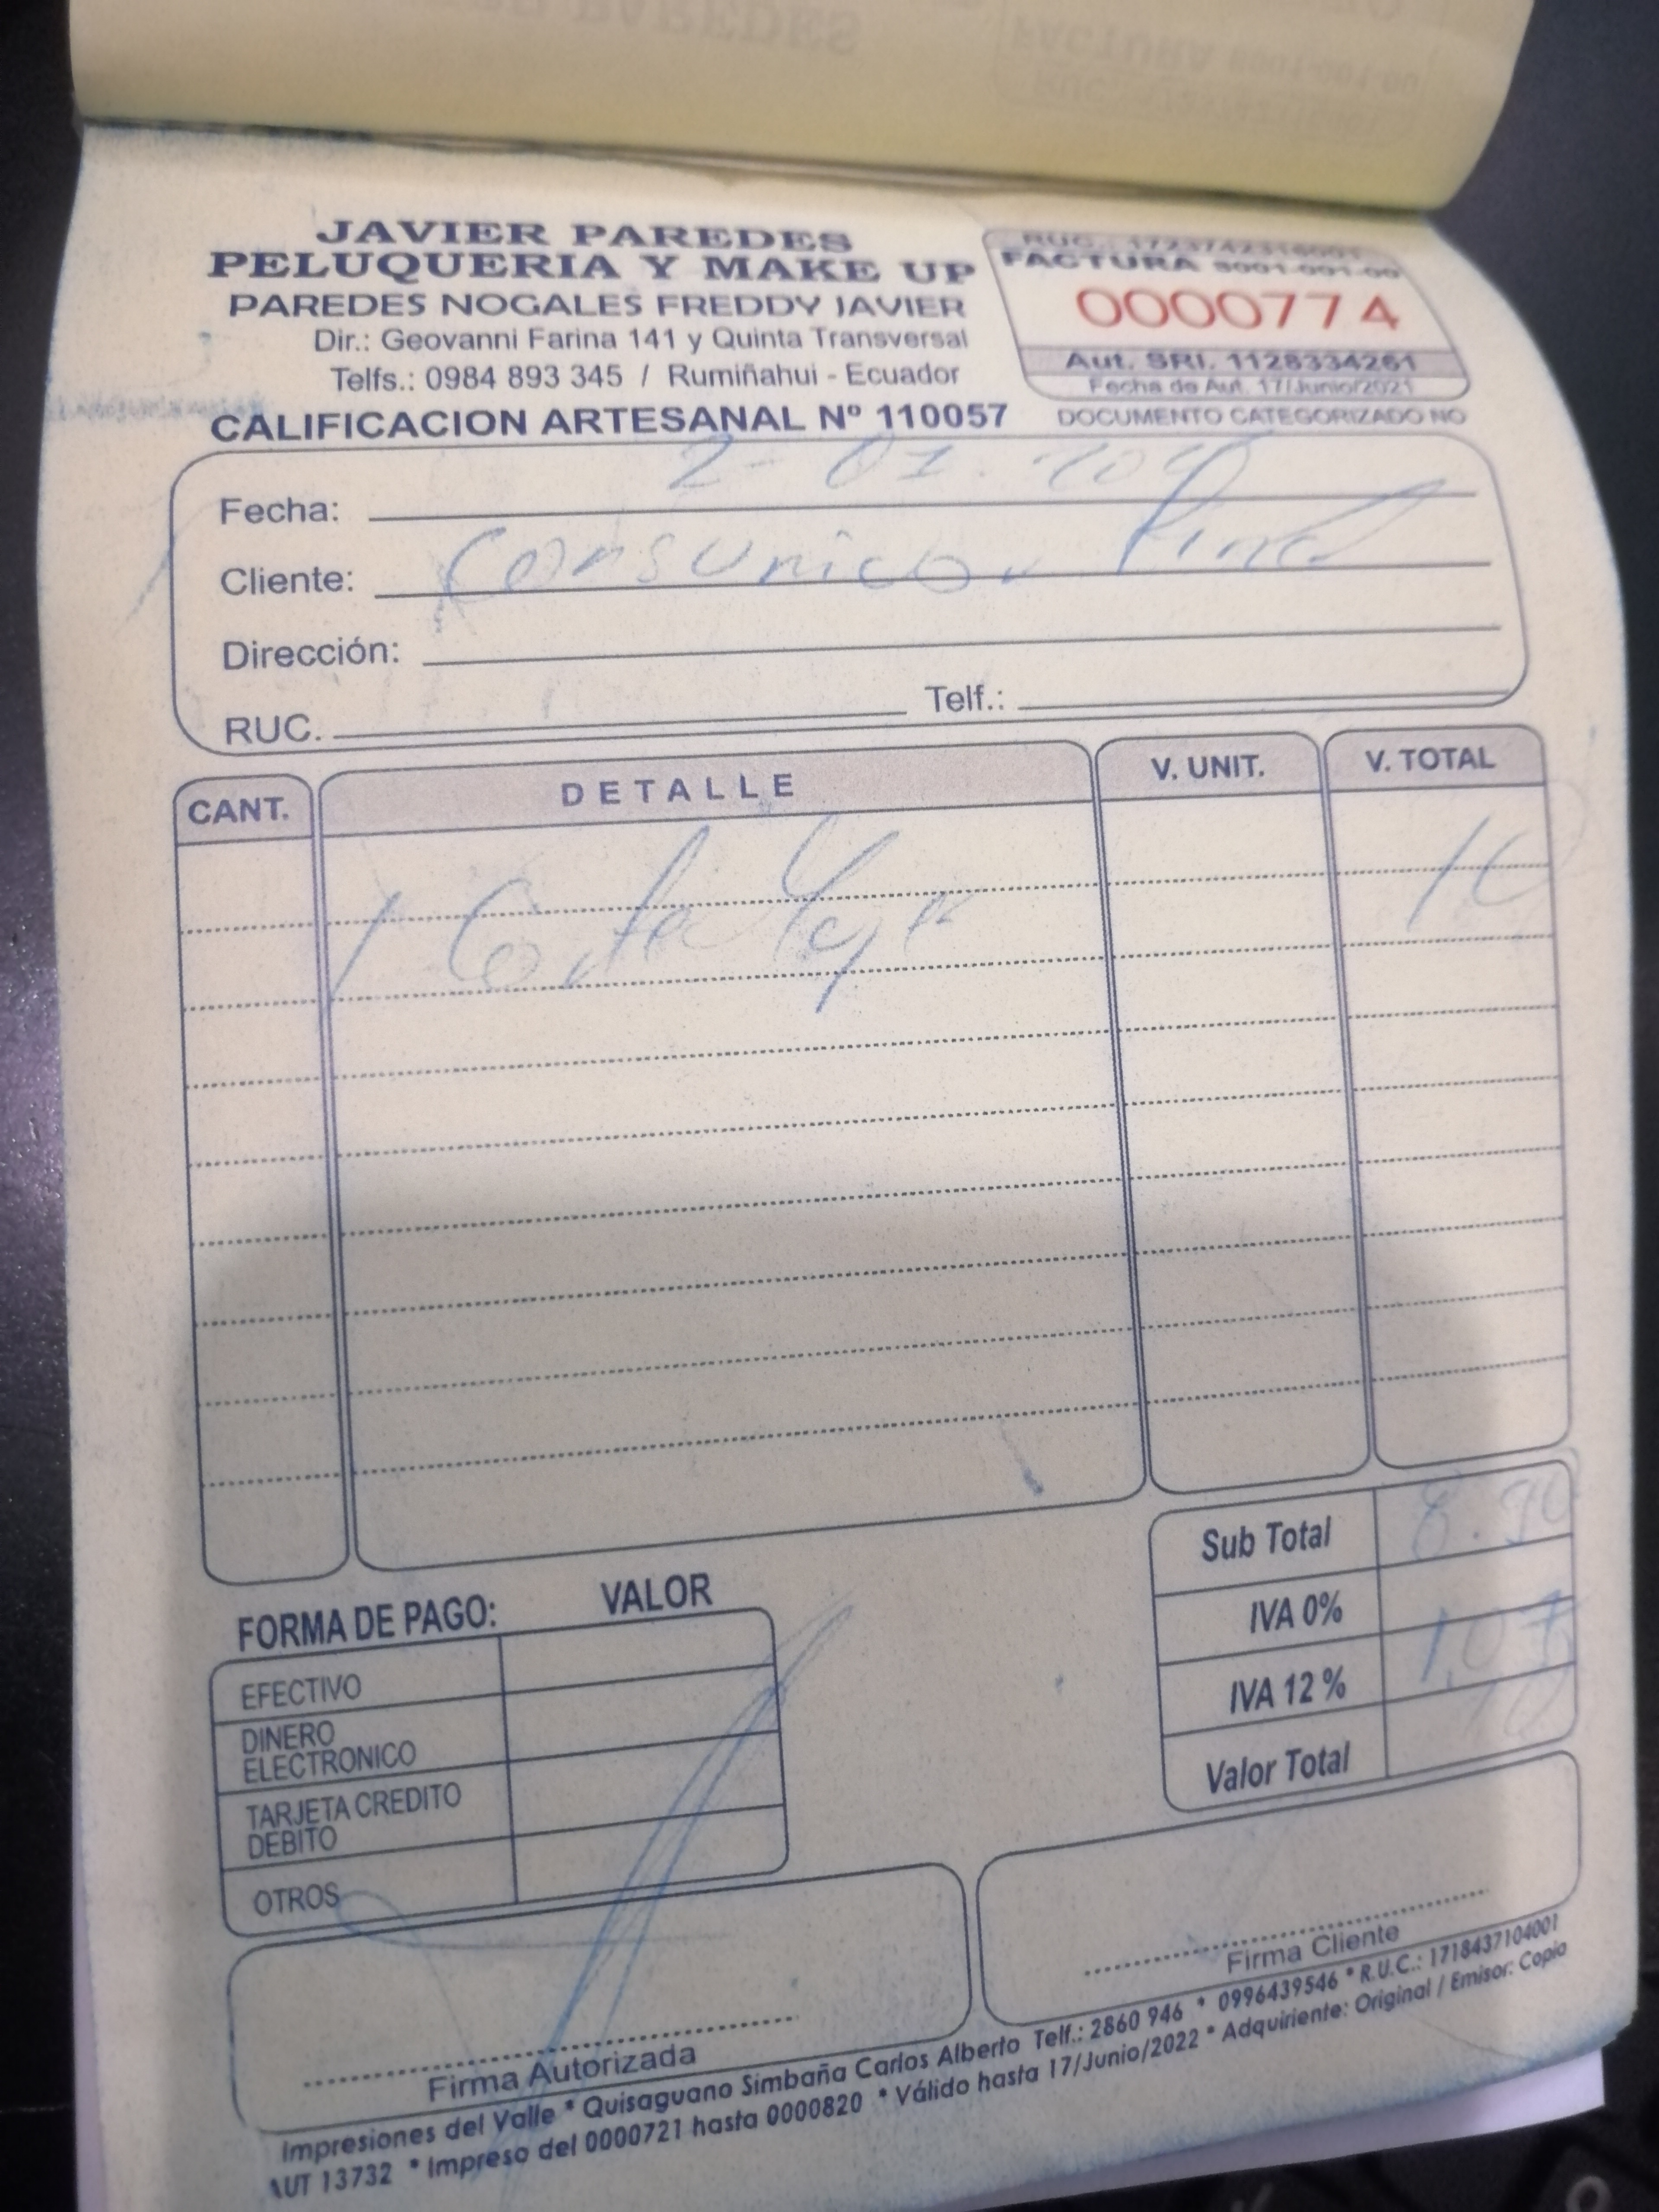 JAVIER PAREDES
PELUQUERIA Y MAKE UP
PAREDES NOGALES FREDDY JAVIER
Dir.: Geovanni Farina 141 y Quinta Transversal
Telfs.: 0984 893 345 / Rumiñahui - Ecuador
CALIFICACION ARTESANAL Nº 110057
RUC.: 1723742316001
FACTURA S001-001-00
0000774
Aut. SRI. 1128334261
Fecha de Aut. 17/Junio/2021
DOCUMENTO CATEGORIZADO NO
Fecha: 2-01.
Cliente: Final
Dirección:
RUC. Telf.:
CANT. DETALLE V. UNIT. V. TOTAL
1 Corte 10
Sub Total 8.
IVA 0%
IVA 12 % 1.07
Valor Total 10
FORMA DE PAGO: VALOR
EFECTIVO
DINERO ELECTRONICO
TARJETA CREDITO DEBITO
OTROS
Firma Autorizada
Firma Cliente
Impresiones del Valle * Quisaguano Simbaña Carlos Alberto Telf.: 2860 946 * 0996439546 * R.U.C.: 1718437104001
AUT 13732 * Impreso del 0000721 hasta 0000820 * Válido hasta 17/Junio/2022 * Adquiriente: Original / Emisor: Copia